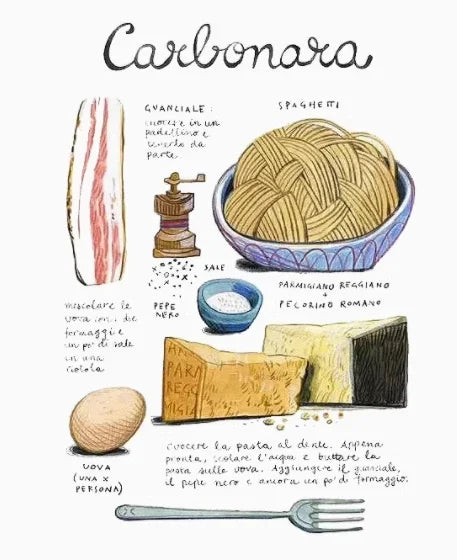 Carbonara
GUANCIALE:
cuocere in un
padellino e
tenerlo da
parte
SPAGHETTI
SALE
PEPE
NERO
PARMIGIANO REGGIANO
+
PECORINO ROMANO
mescolare le
uova con i due
formaggi e
un po' di sale
in una
ciotola
PARMA
REGG
MIGIA
UOVA
(UNA X
PERSONA)
cuocere la pasta al dente. Appena
pronta, scolare l'acqua e buttare la
pasta sulle uova. Aggiungere il guanciale,
il pepe nero e ancora un po' di formaggio.